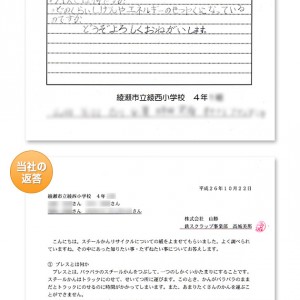 のくらいしげんやエネルギーのせつやくになっている
かですか。
どうぞよろしくおねがいします
綾瀬市立綾西小学校 4年
当社の
返答
平成26年10月22日
綾瀬市立綾西小学校 4年
さん さん
さん さん
株式会社 山根
鉄スクラップ事業部 高橋美和
こんにちは。スチールかんリサイクルについての紙をよませてもらいました。よく調べられて
いますね。その中にあった知りたい事・たずねたい事についてお答えします。
① プレスとは何か
プレスとは、バラバラのスチールかんをつぶして、一つのしかくいかたまりにすることです。
スチールかんはトラックにのせて、せいてつ所に運びます。このとき、かんがバラバラのまま
だとトラックにのせるのに時間がかかってしまいます。また、あまりたくさんのかんを運ぶこ
とができません。